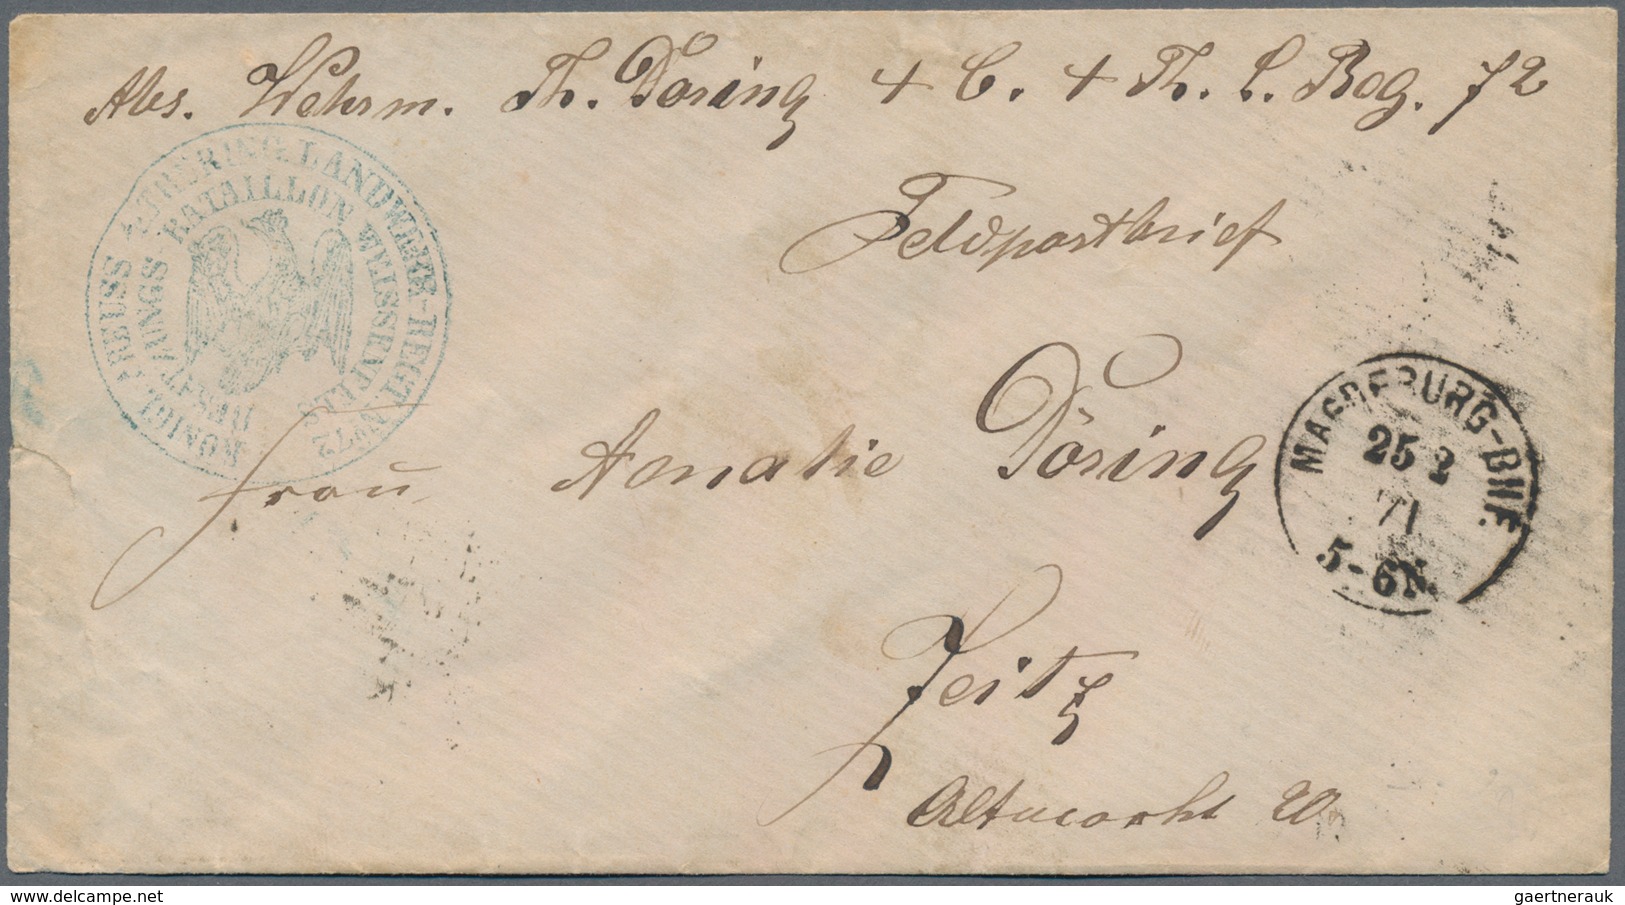 Abs. Wehrm. Th. Döring 4 C. 4 Th. L. Reg. 72
KÖNIGL. PREUSS. 4. THÜRING. LANDWEHR-REGT. No 72
BESATZUNGS BATAILLON WEISSENFELS
Feldpostbrief
Frau Amalie Döring
MAGDEBURG-BHF.
25 2
71
5-6 N.
Zeitz
Altmarkt
www.delcampe.net
gaertnerauk